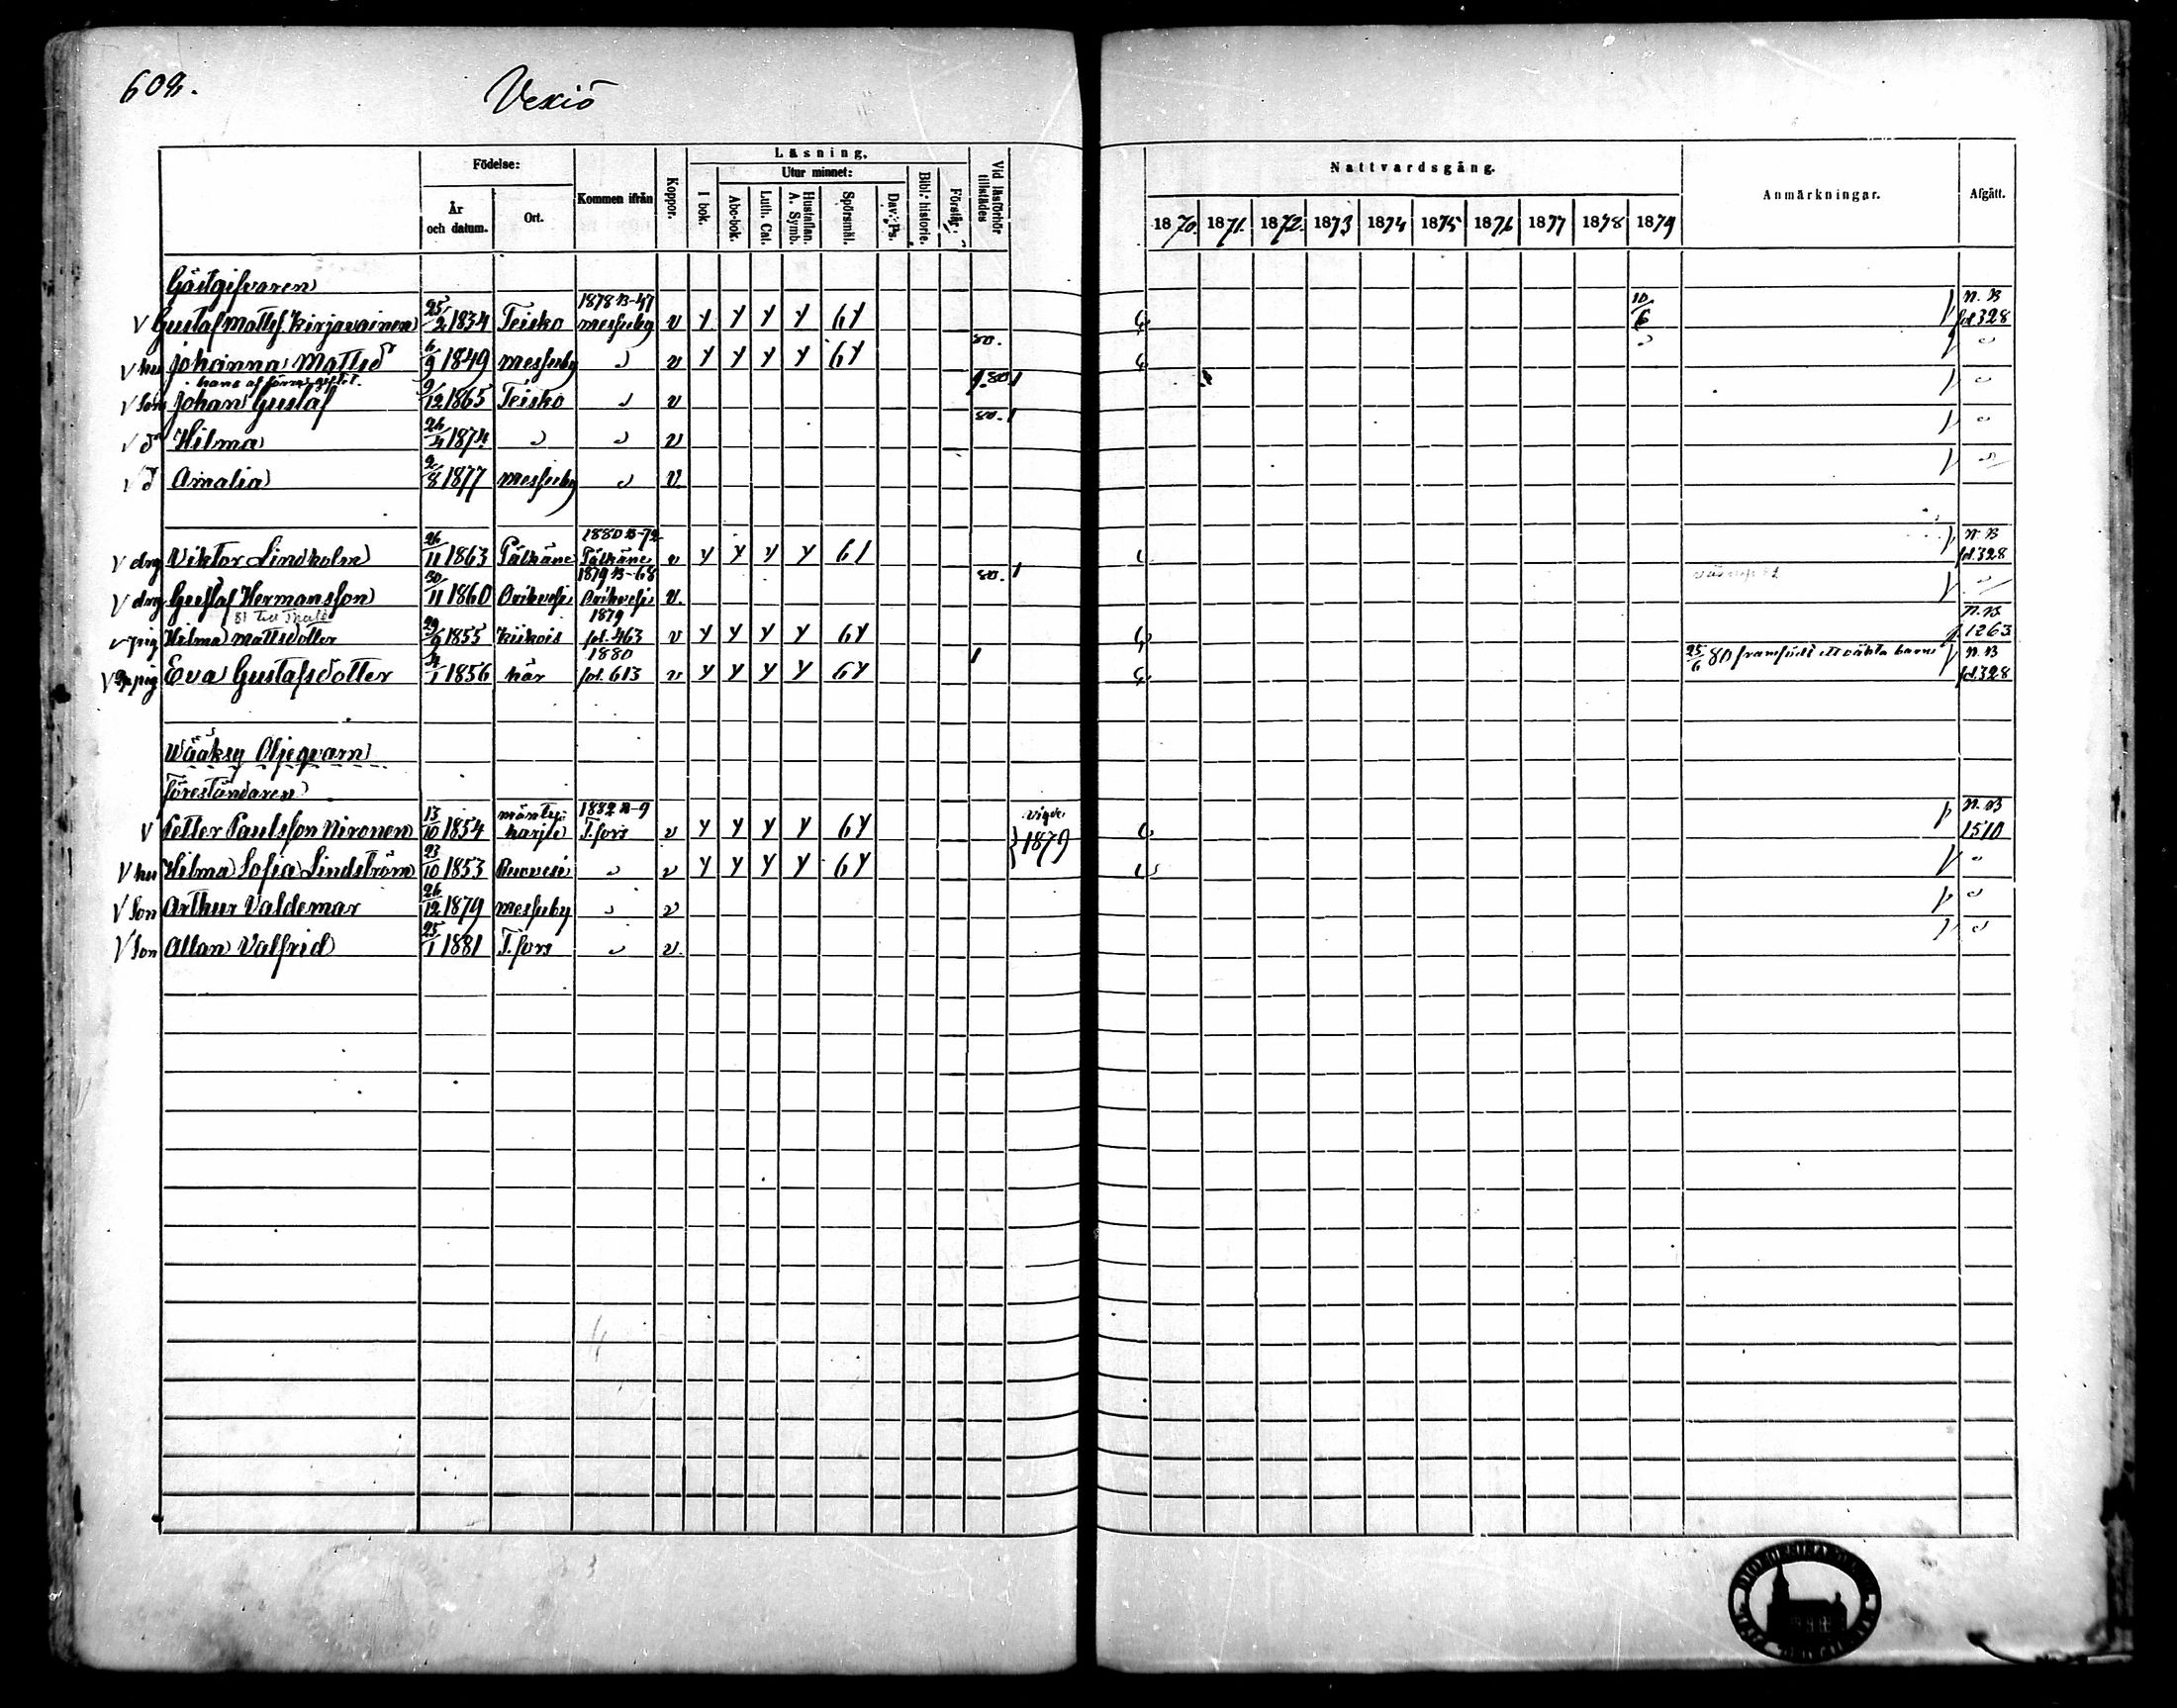 608.
Vexiö
Födelse:
År och datum.
Ort.
Kommen ifrån
Koppor.
Läsning.
I bok.
Utur minnet:
Abc-bok.
Luth. Cat.
Hustaflan. A. Symb.
Spörsmål.
Dav. Ps.
Bibl. historie.
Förståg.
Vid läsförhör tillstädes
Nattvardsgång.
1870. 1871. 1872. 1873 1874 1875 1876 1877 1878 1879
Anmärkningar.
Afgått.
Gästgifvaren
1878 B-47 10/6 n. B
v Gustaf Mattss Kirjavainen 25/2 1834 Teisko Messuby v y y y y 6y fol 328
v hu Johanna Mattsdr 6/9 1849 Messuby " v y y y y 6y 80. "
hans af förra giftet.
v Son Johan Gustaf 9/12 1865 Teisko " v 1.80.1 "
v dr Hilma 26/4 1874. " " v 80. 1 "
v d Amalia 2/8 1877 Messuby " v. "
1880 B-72 n. B
v drg Viktor Lindholm 26/11 1863 Pälkäne Pälkäne v y y y y 61 fol. 328
1879 B-68
v drg Gustaf Hermansson 30/11 1860 Orihvesi Orihvesi v. 80. 1 "
1879 n. B
v pig Hilma Mattsdotter 29/9 1855 Kiikois fol. 463 v y y y y 6y p. 1263
1880 25/6 80 framfödt ett oäkta barn n. B
v pig Eva Gustafsdotter 4/1 1856 här fol. 613 v y y y y 6y 1 fol. 328
Wääksy Oljeqvarn
Föreståndaren
mänty- 1882 B-9 vigde n. B
v Petter Paulsson Nironen 13/10 1854 harju T.fors v y y y y 6y 1879 1510
v hu Hilma Sofia Lindström 23/10 1853 Ruovesi " v y y y y 6y "
v Son Arthur Valdemar 26/12 1879 Messuby " v "
v Son Allan Valfrid 25/1 1881 T.fors " v. "